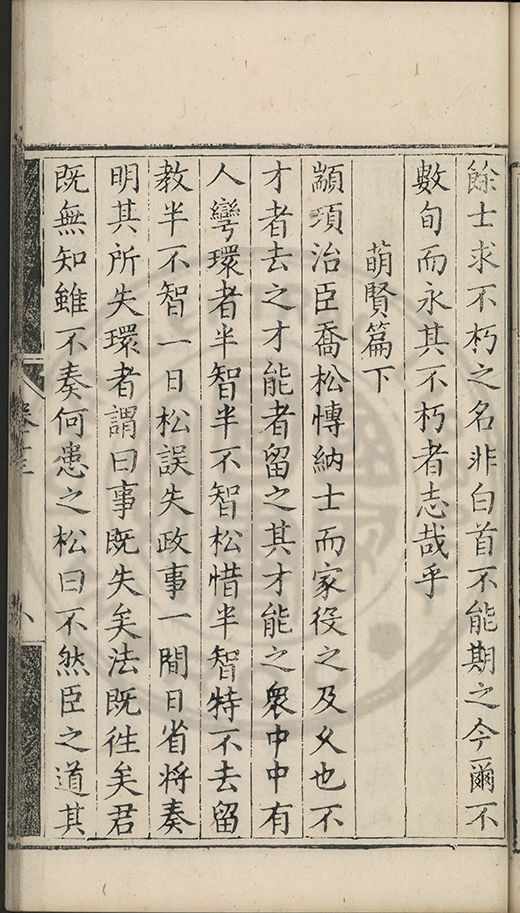 餘士求不朽之名非白首不能期之今爾不
數旬而永其不朽者志哉乎
萌賢篇下
顓頊治臣喬松慱納士而家役之及夊也不
才者去之才能者留之其才能之衆中中有
人彎環者半智半不智松惜半智特不去留
教半不智一日松誤失政事一間日省將奏
明其所失環者謂曰事既失矣法既徃矣君
既無知雖不奏何患之松曰不然臣之道其